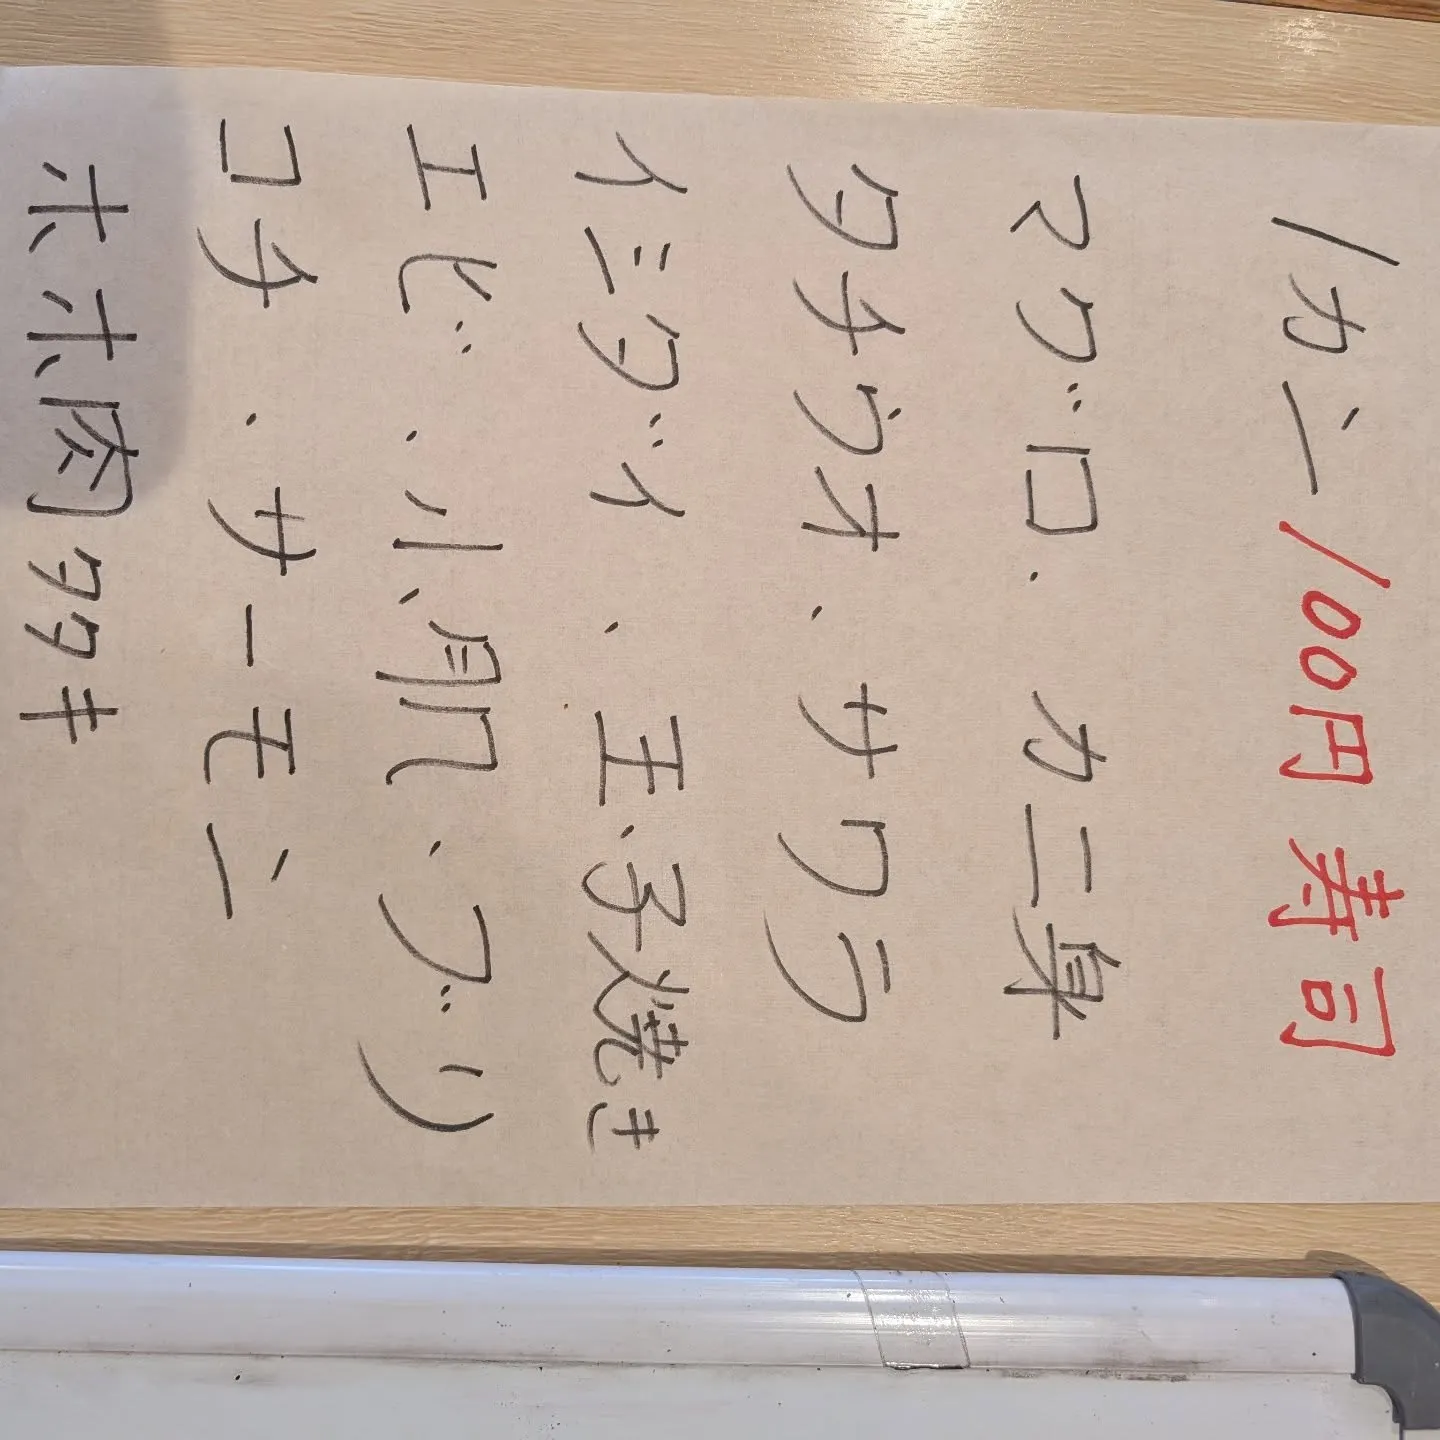 1カン100円寿司
マグロ、カニ身
タチウオ、サワラ
イシダイ、玉子焼き
エビ、小肌、ブリ
コチ、サーモン
ホホ肉タタキ